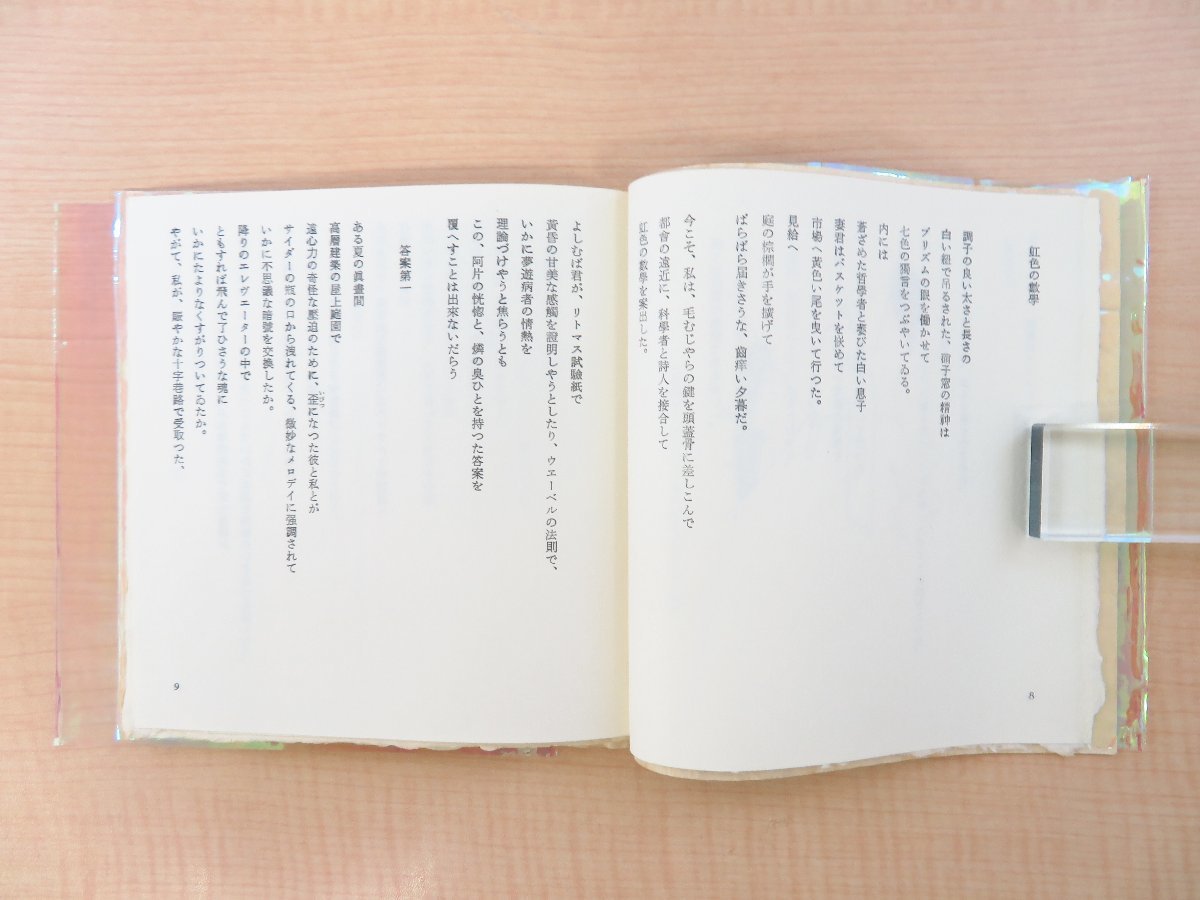 虹色の數學
調子の良い太さと長さの
白い紐で吊るされた、硝子窓の精神は
プリズムの眼を働かせて
七色の獨言をつぶやいてゐる。
内には
蒼ざめた哲學者と萎びた白い息子
妻君はバスケツトを嵌めて
市場へ黄色い尾を曳いて行つた。
見給へ
庭の棕櫚が手を擴げて
ばらばら届きさうな、齒痒い夕暮だ。
今こそ、私は、毛むじやらの鍵を頭蓋骨に差しこんで
都會の遠近に、科學者と詩人を接合して
虹色の數學を案出した。
8
よしむば君が、リトマス試驗紙で
黄昏の甘美な感觸を證明しやうとしたり、ウエーベルの法則で、
いかに夢遊病者の情熱を
理論づけやうと焦らうとも
この、阿片の恍惚と、燐の臭ひとを持つた答案を
覆へすことは出來ないだらう
答案第一
ある夏の眞晝間
高層建築の屋上庭園で
遠心力の奇怪な壓迫のために、歪になつた彼と私とが
サイダーの瓶の口から洩れてくる、微妙なメロデイに强調されて
いかに不思議な暗號を交換したか。
降りのエレヴエーターの中で
ともすれば飛んで了ひさうな魂に
いかにたよりなくすがりついてゐたか。
やがて、私が、賑やかな十字巷路で受取つた、
9